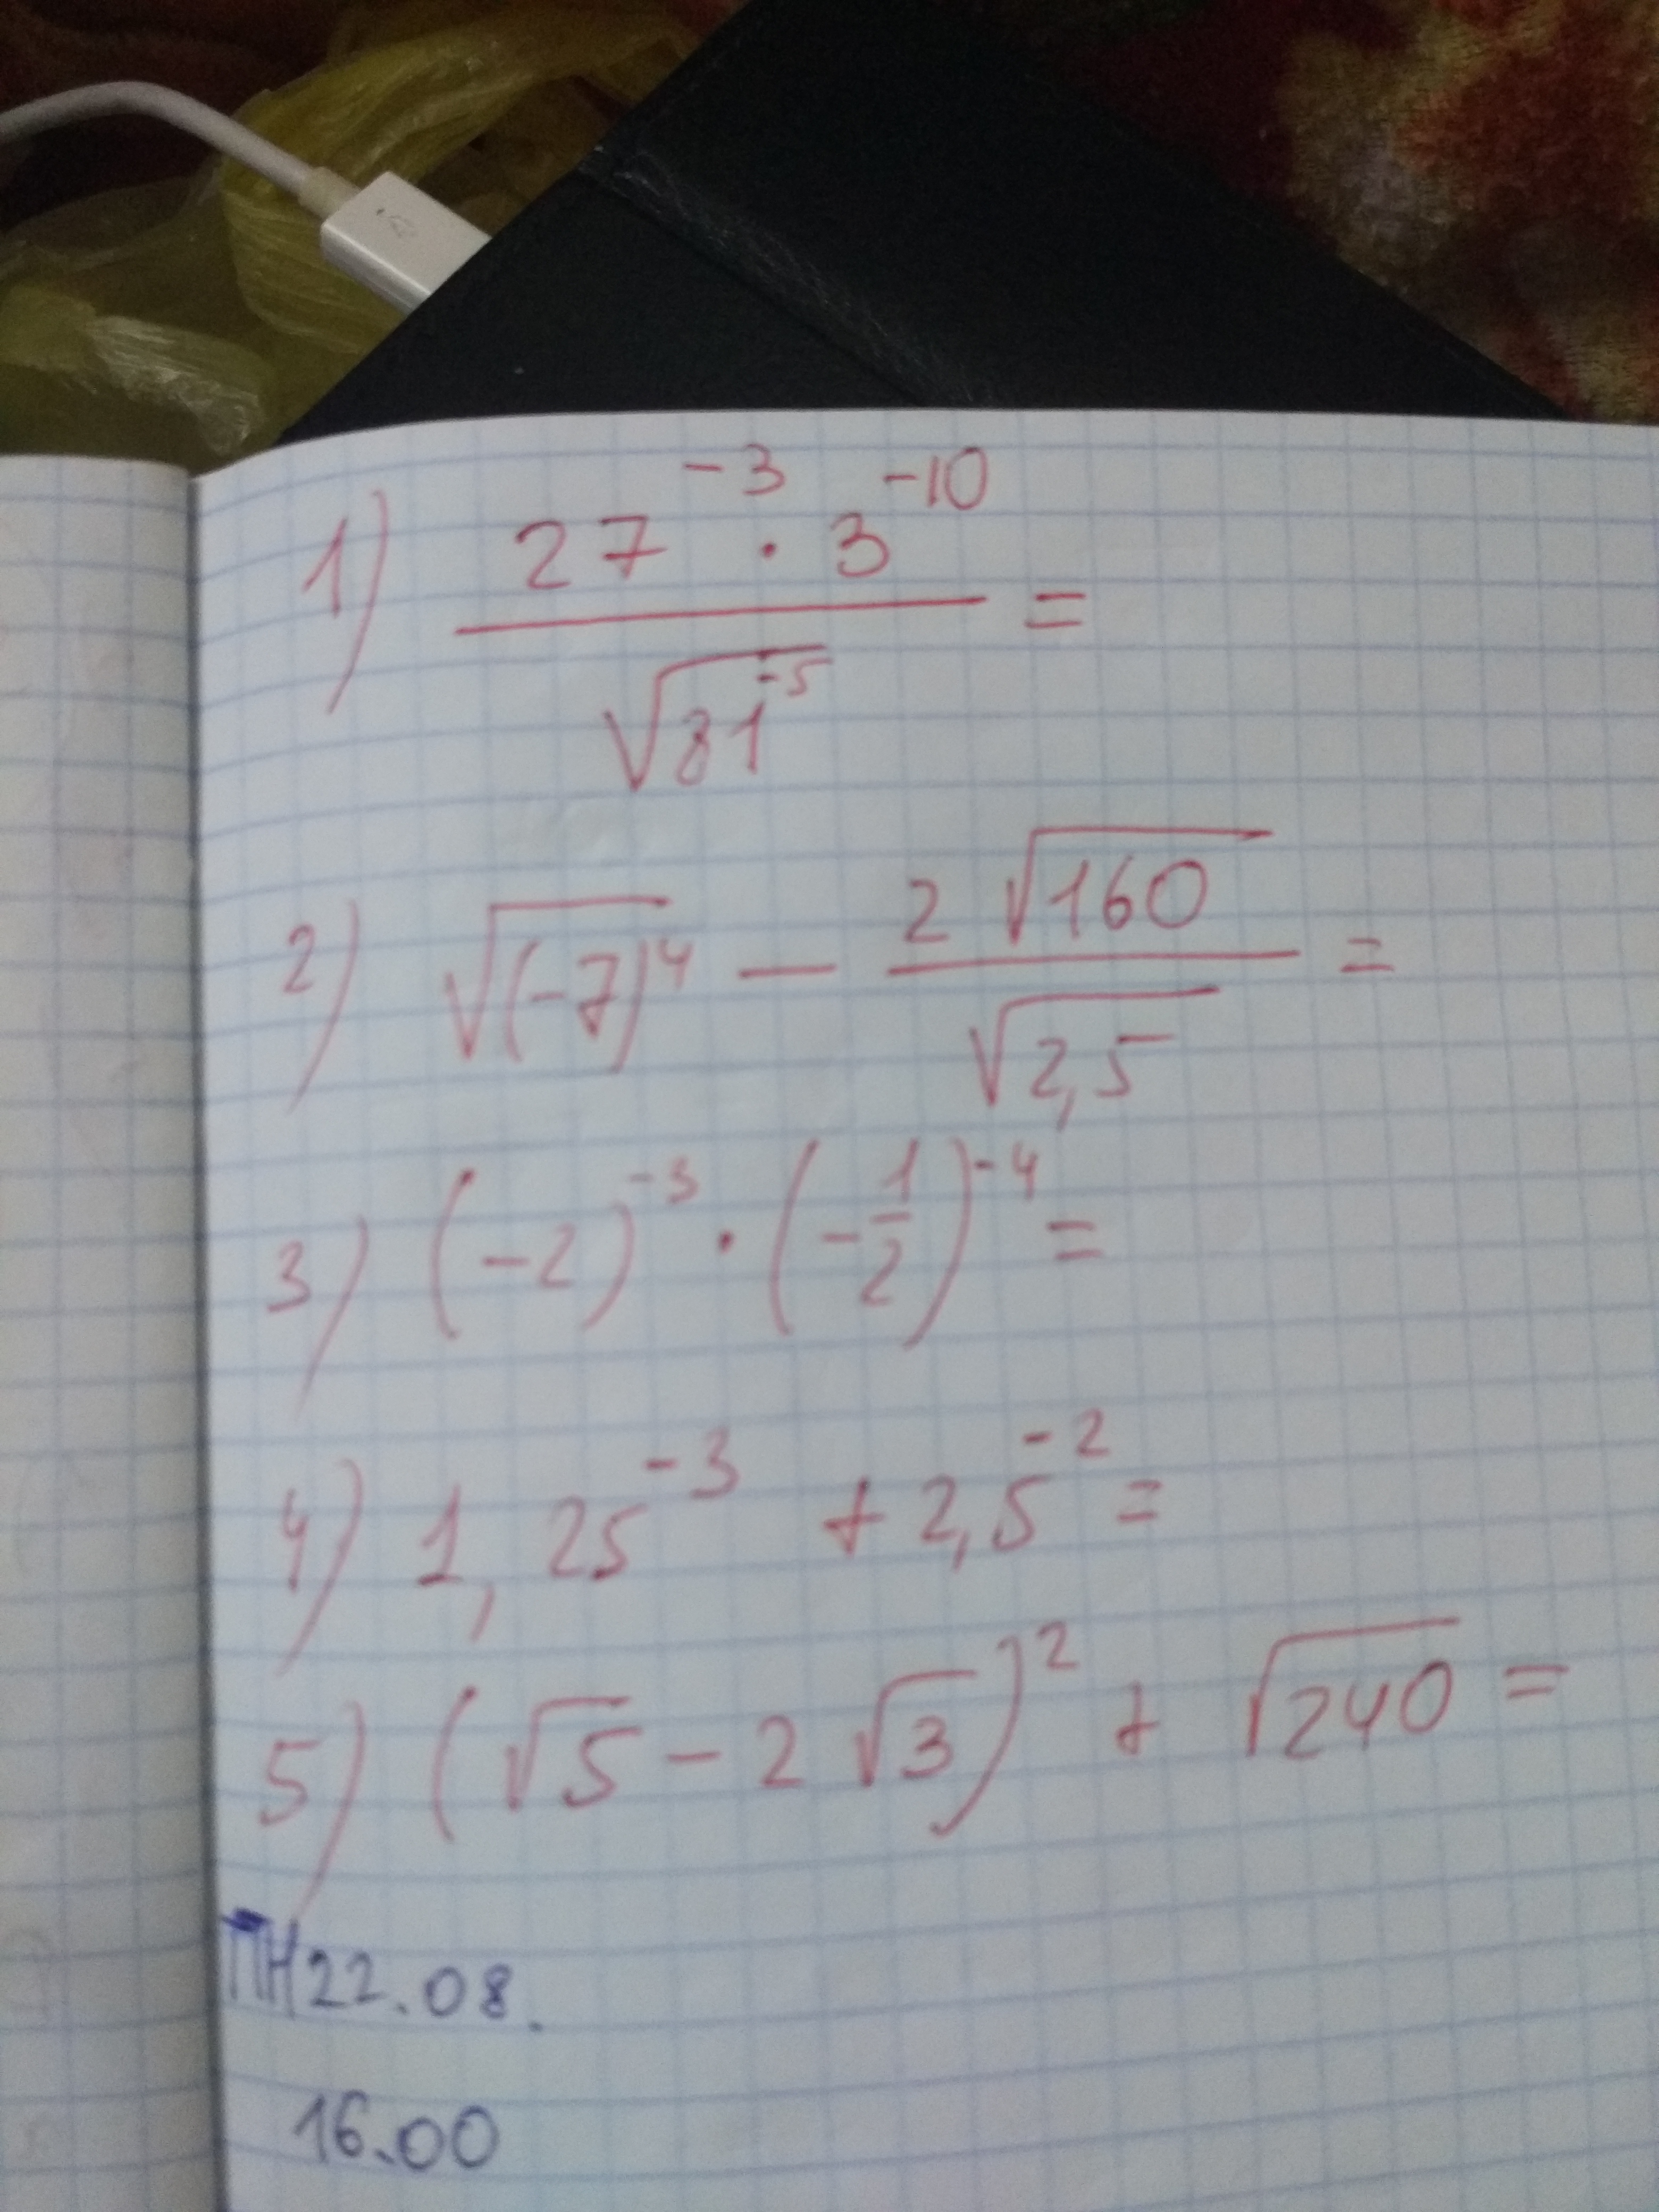 1) (27^-3 · 3^-10) / √(81^-5) =
2) √((-7)^4) — (2√160) / √(2,5) =
3) (-2)^-3 · (-1/2)^-4 =
4) 1,25^-3 + 2,5^-2 =
5) (√5 - 2√3)^2 + √240 =
ПН 22.08.
16.00